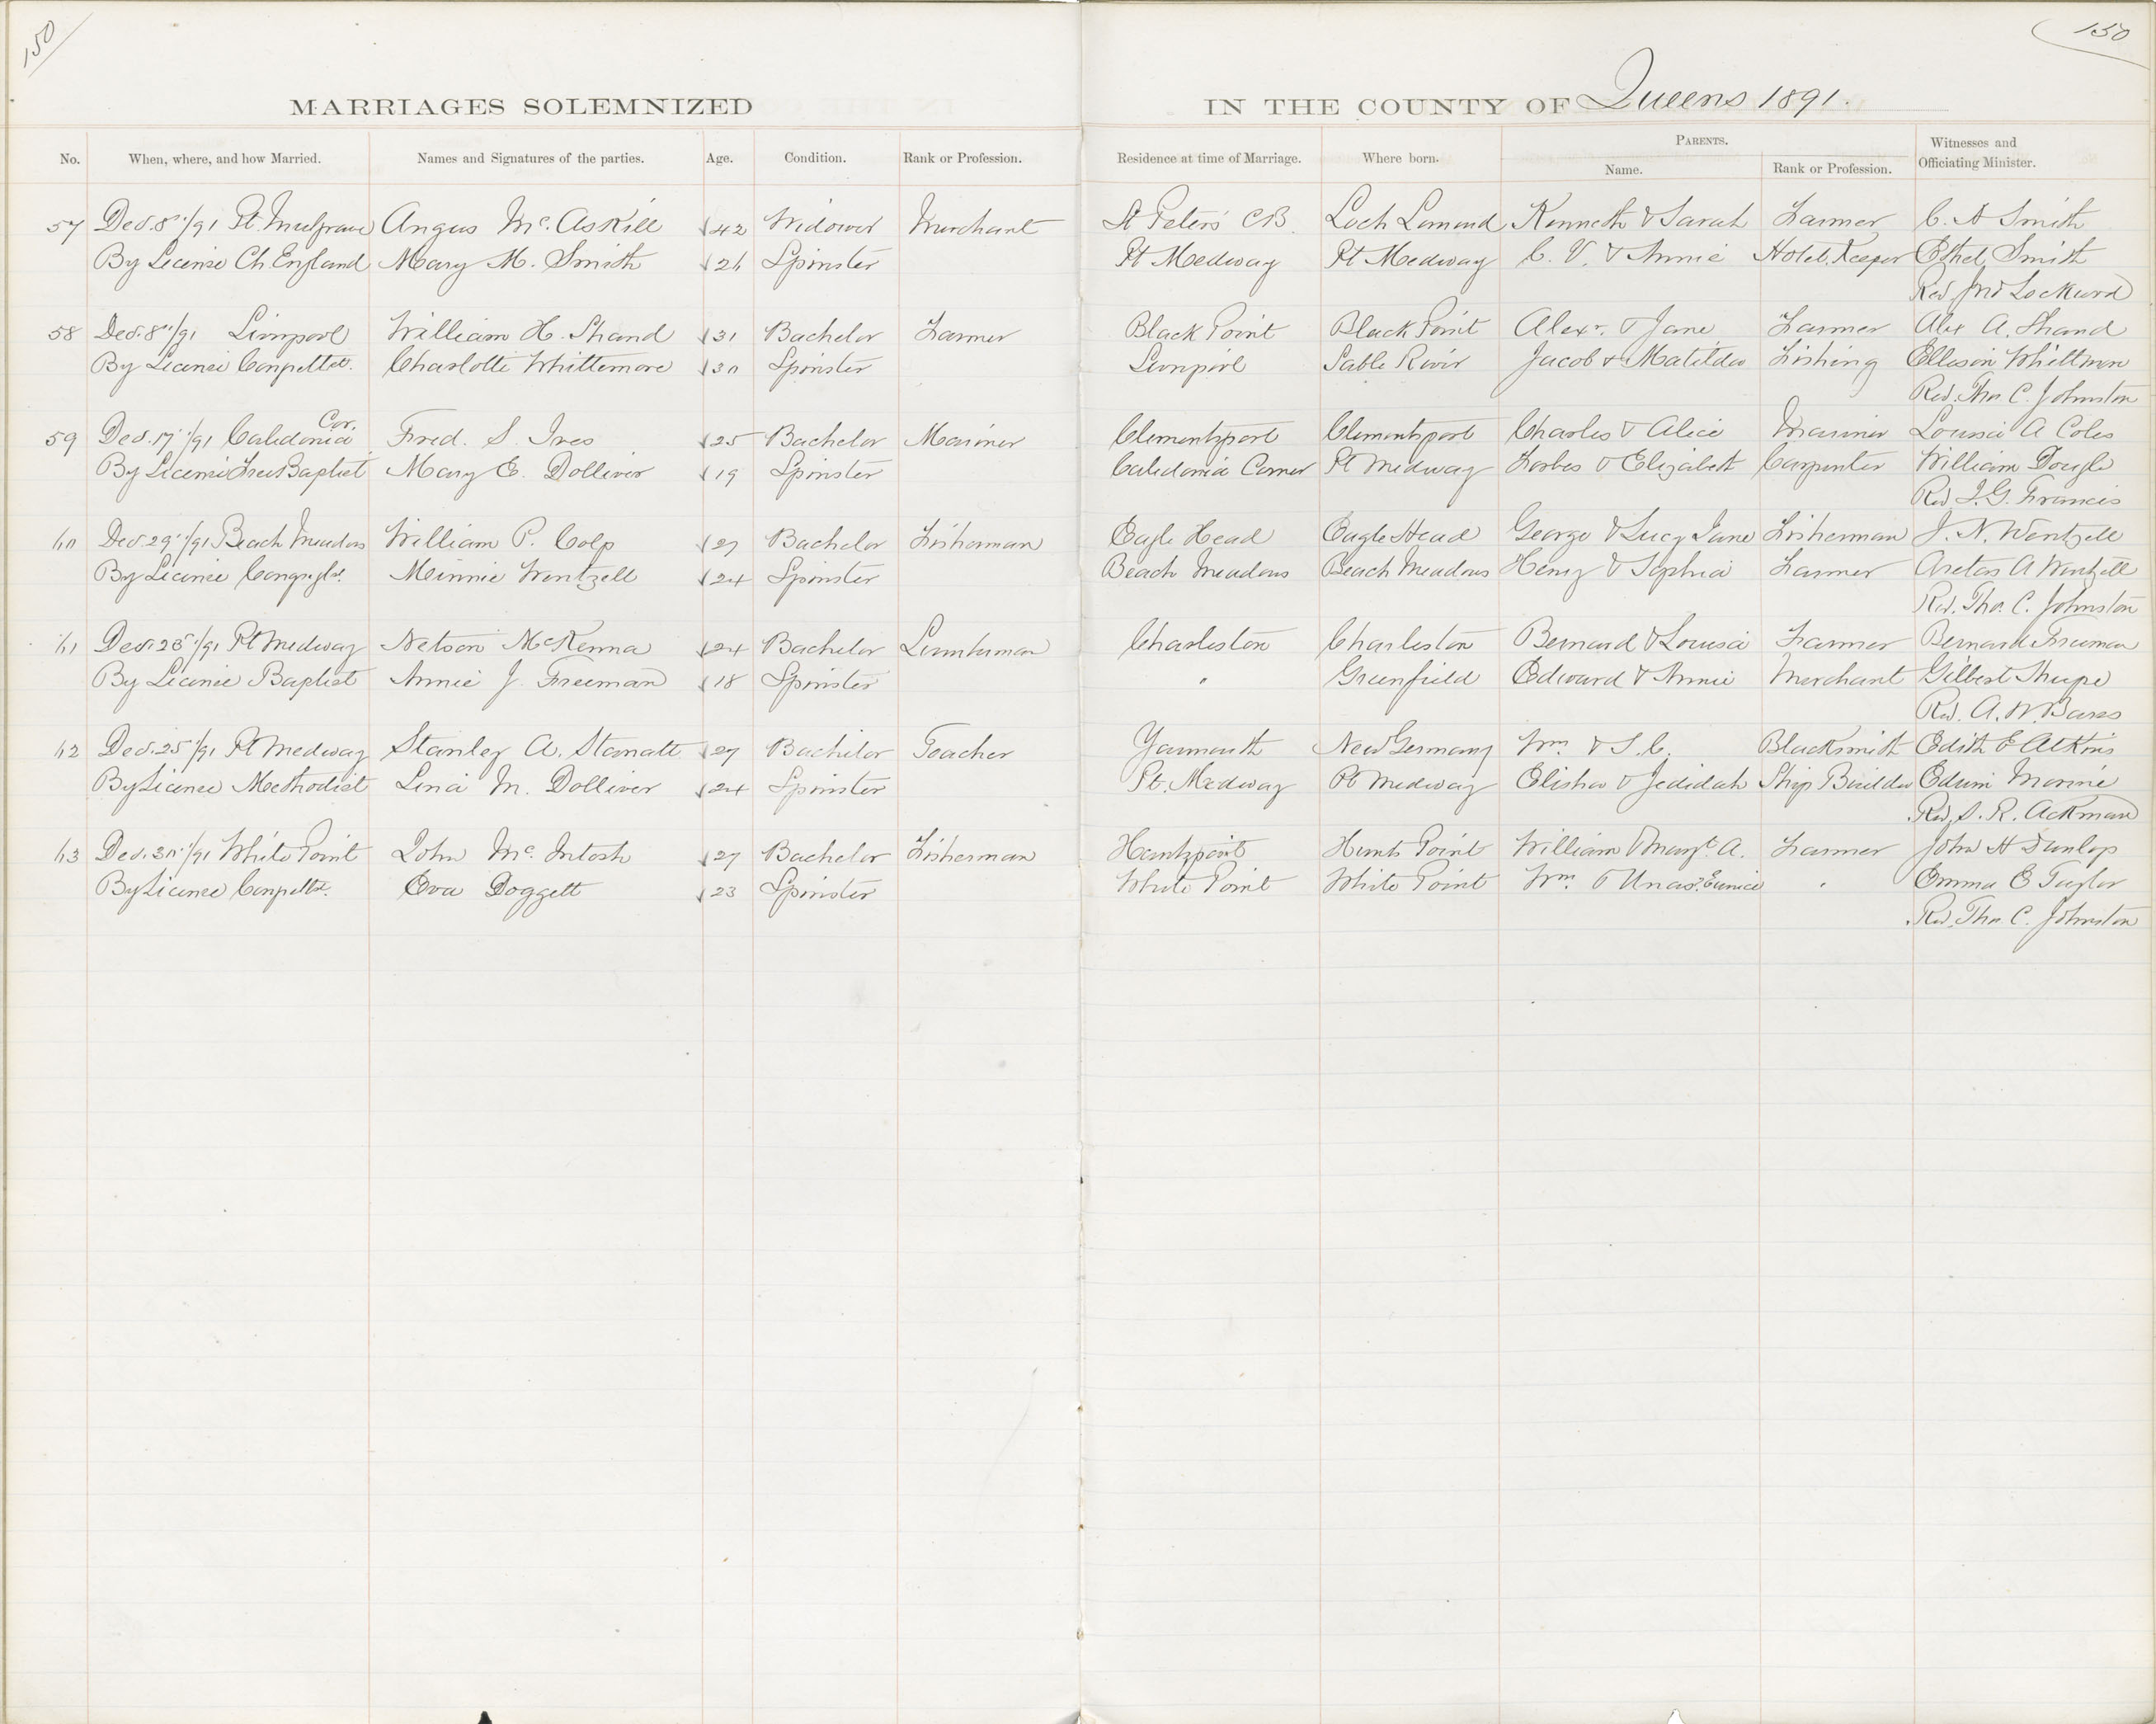 150
150
MARRIAGES SOLEMNIZED IN THE COUNTY OF Queens 1891.
No. When, where, and how Married. Names and Signatures of the parties. Age. Condition. Rank or Profession. Residence at time of Marriage. Where born. PARENTS. Name. Rank or Profession. Witnesses and Officiating Minister.
57 Dec. 8"/91 Pt. Mulgrave Angus Mc.Askill 42 Widower Merchant St Peters C.B. Loch Lomond Kenneth & Sarah Farmer C. A Smith
By License Ch England Mary M. Smith 26 Spinster Pt Medway Pt Medway C. V. & Annie Hotel Keeper Ethel Smith
Rev. Jno Lockword
58 Dec. 8"/91 Liverpool William H. Shand 31 Bachelor Farmer Black Point Black Point Alexr. & Jane Farmer Alex A. Shand
By License Charlotte Whittemore 30 Spinster Liverpool Sable River Jacob & Matilda Fishing Ellison Whittman
Rev. Tho C. Johnston
59 Dec. 17"/91 Caledonia Cor. Fred. S. Ives 25 Bachelor Mariner Clementsport Clementsport Charles & Alice Mariner Louisa A Coles
By License Free Baptist Mary E. Dolliver 19 Spinster Caledonia Corner Pt Medway Forbes & Elizabeth Carpenter William Dougle
Rev J. G. Francis
60 Dec. 29"/91 Beach Meadows William P. Colp 27 Bachelor Fisherman Eagle Head Eagle Head George & Lucy Jane Fisherman J. N. Wentzell
By License Minnie Wentzell 24 Spinster Beach Meadows Beach Meadows Henry & Sophia Farmer A Wentzell
Rev. Tho. C. Johnston
61 Dec. /91 Pt Medway Nelson McKenna 24 Bachelor Lumberman Charleston Charleston Bernard & Louisa Farmer Bernard Freeman
By License Baptist Annie J. Freeman 18 Spinster " Greenfield Edward & Annie Merchant Gilbert
Rev. A. W. Barss
62 Dec. 25"/91 Pt Medway Stanley A. Stanatt 27 Bachelor Teacher Yarmouth New Germany Wm. & S. C. Blacksmith Edith E Atkins
By License Methodist Lena M. Dolliver 24 Spinster Pt. Medway Pt Medway Elisha & Jedidah Ship Builder Edwin Morine
Rev. S. R. Ackman
63 Dec. 30"/91 White Point John Mc. Intosh 27 Bachelor Fisherman Huntzpoint Hunts Point William & Margt. A. Farmer John H Dunlop
By License Eva Doggett 23 Spinster White Point White Point Wm & Unas? Eunice " Emma E Taylor
Rev. Tho C. Johnston